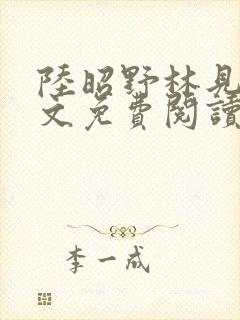 陸昭野林見
文免費閱讀
李一成